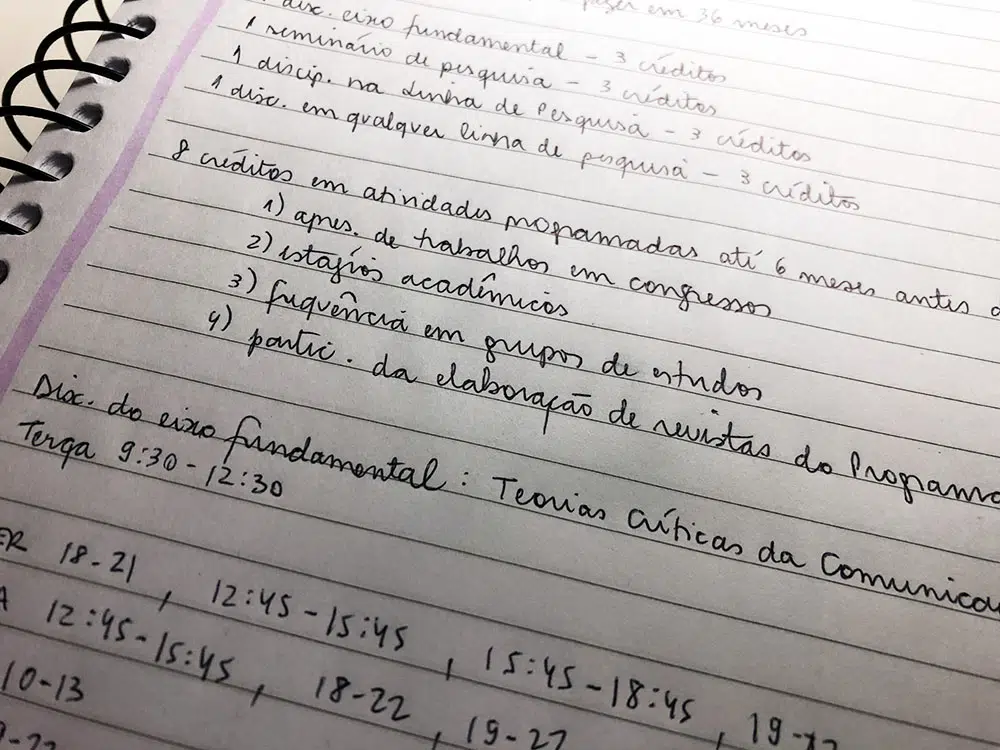 fazer em 36 meses
disc. eixo fundamental - 3 créditos
1 seminário de pesquisa - 3 créditos
1 discip. na Linha de Pesquisa - 3 créditos
1 disc. em qualquer linha de pesquisa - 3 créditos
8 créditos em atividades programadas até 6 meses antes
1) apres. de trabalhos em congressos
2) estágios acadêmicos
3) frequência em grupos de estudos
4) partic. da elaboração de revistas do Programa
Disc. do eixo fundamental: Teorias Críticas da Comunica
Terça 9:30-12:30
ER 18-21, 12:45-15:45, 15:45-18:45, 19-22
A 12:45-15:45, 18-22, 19-22
10-13